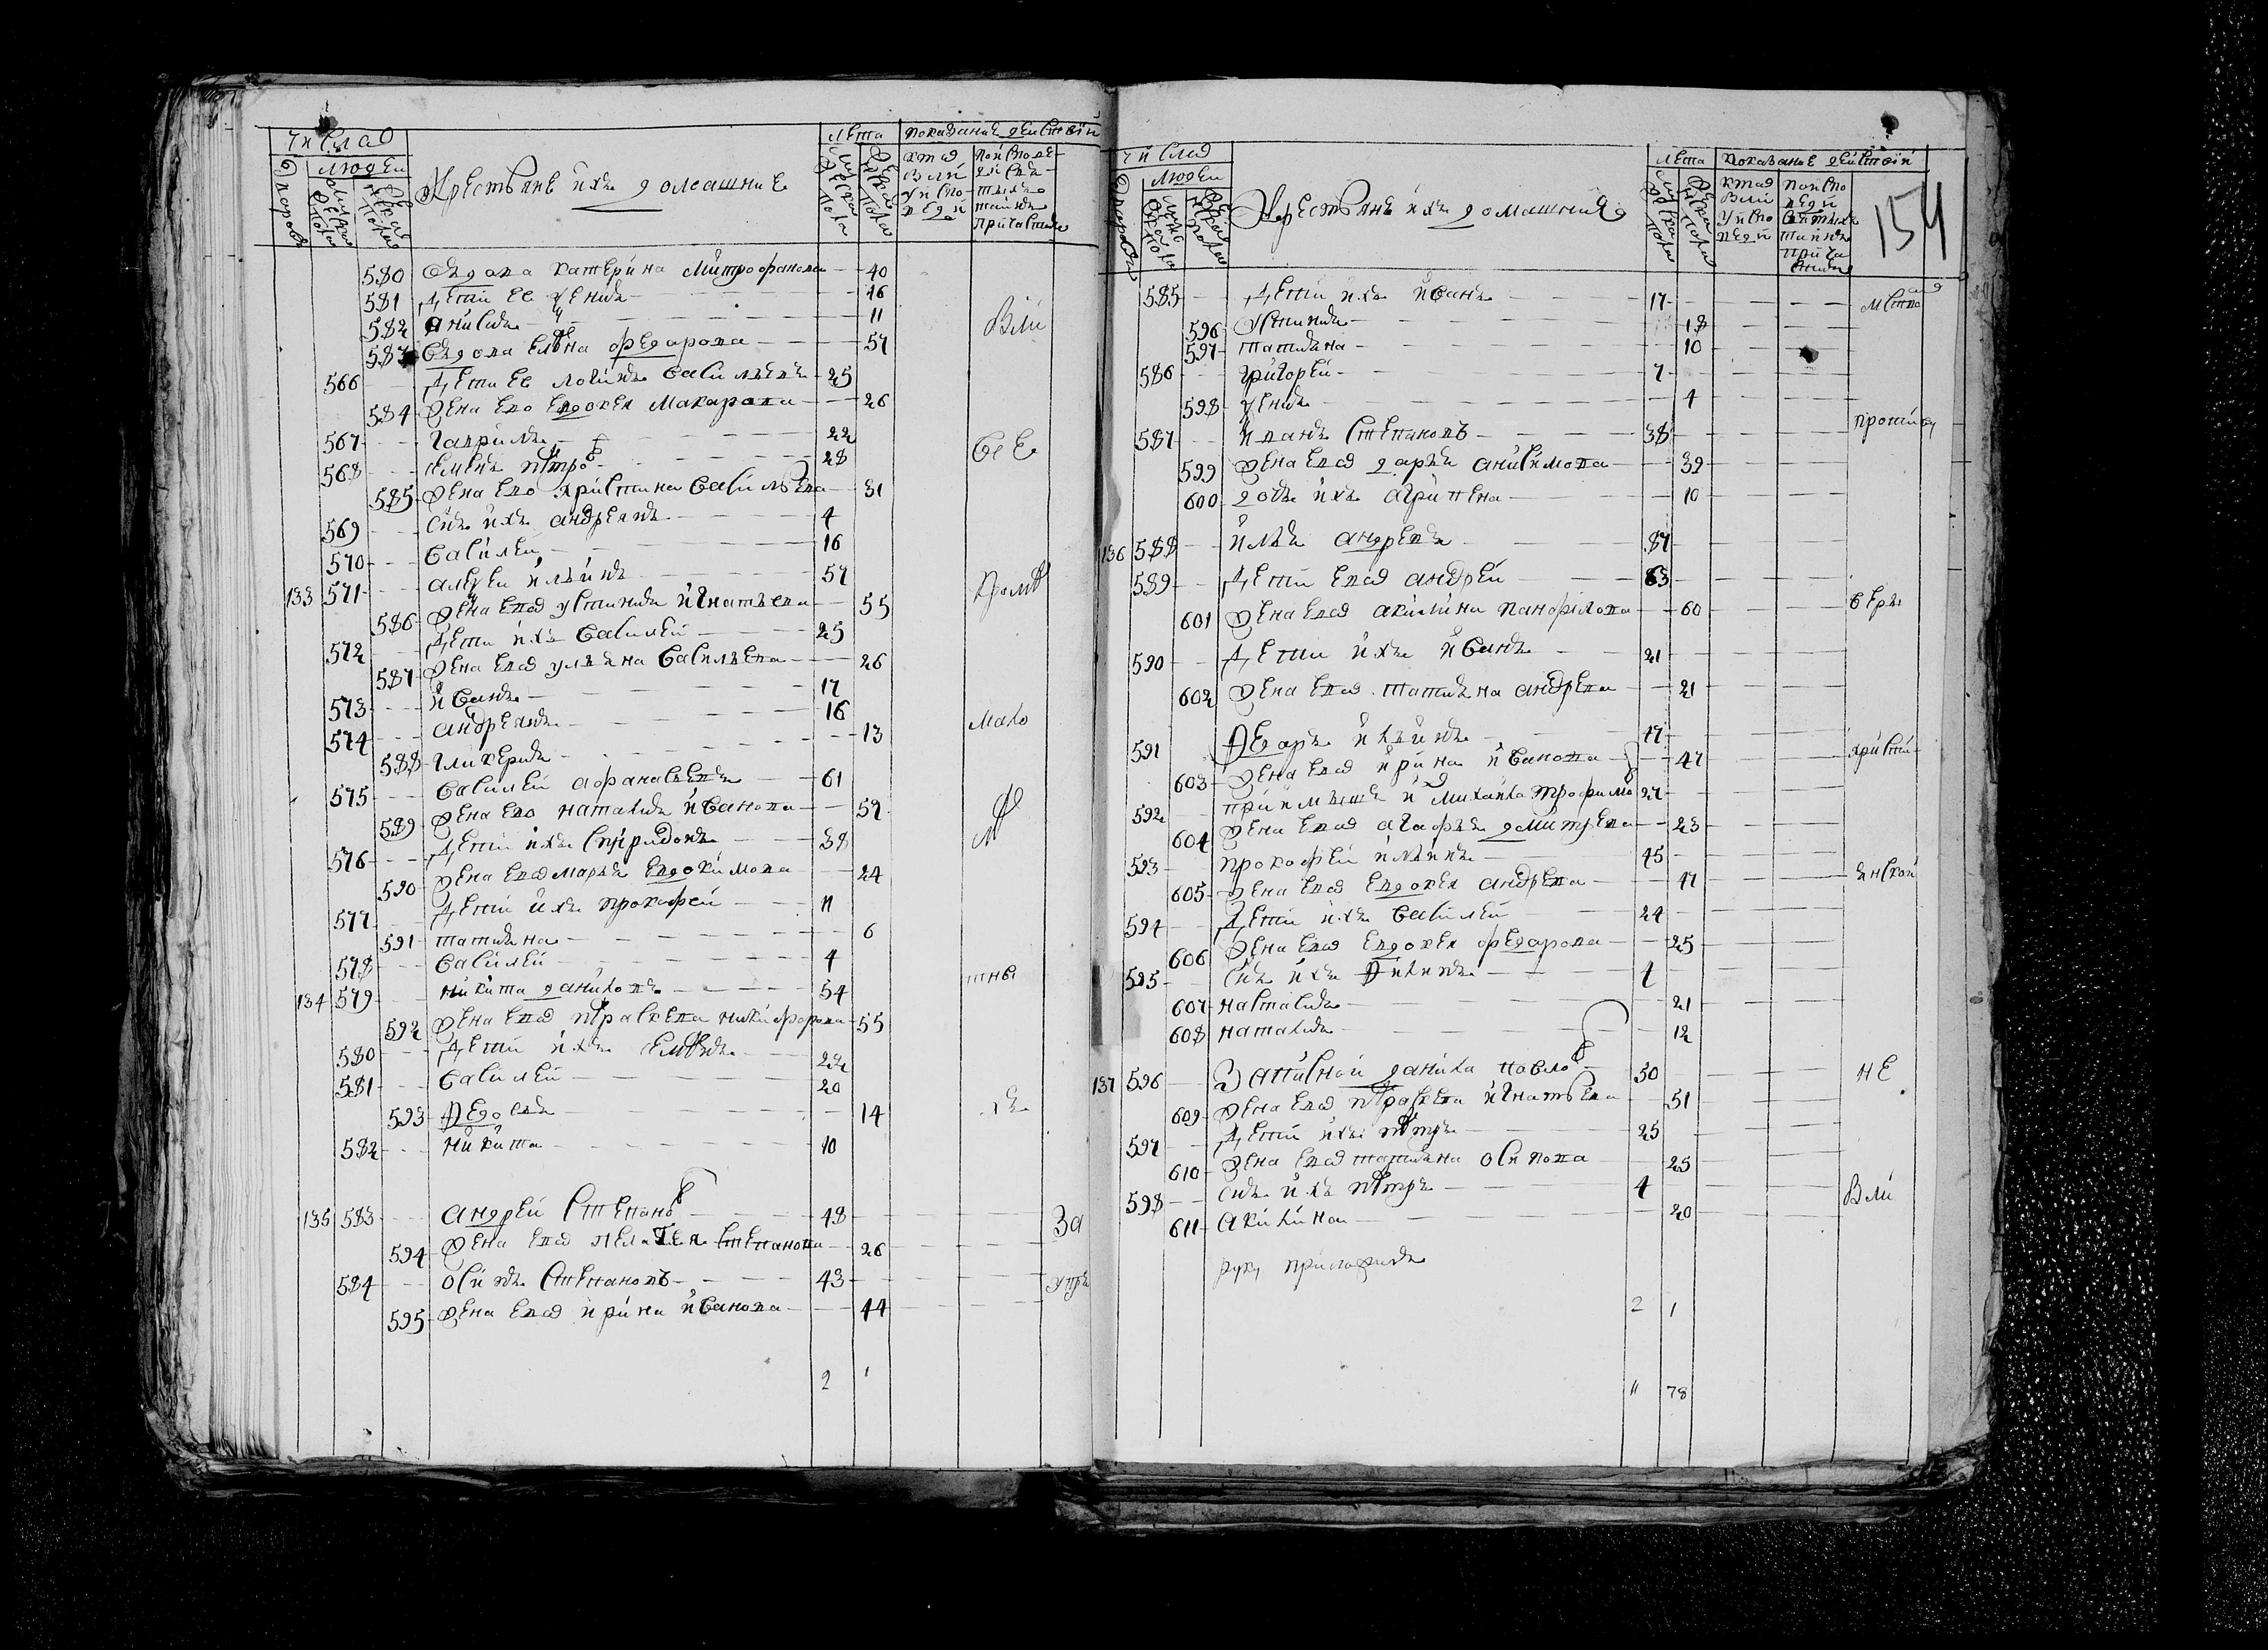 Числа
Дворовъ
людей
мужеска пола
женска пола
Крестьяне и ихъ домашние
Лета
мужеска пола
женска пола
показание действий
580 вдова катерина митрофанова 40
581 дети ее ксения 16
582 анисия 11
583 вдова елена федарова 57
566 дети ее логинъ васильевъ 25
584 жена ево евдокея макарова 26
567 гаврила 22
568 семенъ петровъ 28
585 жена ево христина васильева 31
569 сынъ ихъ андреянъ 4
570 василей 16
133 571 алексей ильинъ 57
586 жена ево устиния игнатьева 55
572 дети ихъ василей 25
587 жена ево ульяна васильева 26
573 иванъ 17
574 андреянъ 16
588 гликерия 13
575 василей афанасьевъ 61
589 жена ево наталия иванова 57
576 дети ихъ спиридонъ 38
590 жена ево марья евдокимова 24
577 дети ихъ прокофей 11
591 татияна 6
578 василей 4
134 579 никита даниловъ 54
592 жена ево прасковя никифорова 55
580 дети ихъ семенъ 22
581 василей 20
593 федосия 14
582 никита 10
135 583 андрей степановъ 48
594 жена ево пелагея степанова 26
584 осипъ степановъ 43
595 жена ево ирина иванова 44
2 1
Вли
все
кроме
мало
тны
хъ
За
Числа
Дворовъ
людей
мужеска пола
женска пола
Крестьяне и ихъ домашние
Лета
мужеска пола
женска пола
показание действий
154
585 дети ихъ иванъ 17
596 устиния 18
597 татияна 10
586 григорей 7
598 ксения 4
587 иванъ степановъ 38
599 жена ево дарья анисимова 39
600 дочь ихъ агрипена 10
136 588 илья андреевъ 87
589 дети ево андрей 63
601 жена ево акилина панфилова 60
590 дети ихъ иванъ 21
602 жена ево татияна андрева 21
591 федаръ ильинъ 47
603 жена ево ирина иванова 47
592 приимышъ их михаила трофимо 27
604 жена ево агафья дмитрева 23
593 прокофей ильинъ 45
605 жена ево евдокея андрева 47
594 дети ихъ василей 24
606 жена ево евдокея федарова 25
595 сынъ ихъ филипъ 1
607 настасия 21
608 наталия 12
137 596 Записной данила павловъ 50
609 жена ево прасковя игнатьева 51
597 дети ихъ петръ 25
610 жена ево татияна осипова 25
598 сынъ ихъ петръ 4
611 акилина 20
руку приложилъ
2 1
" 78
противу
христи-
янской
не
Вли